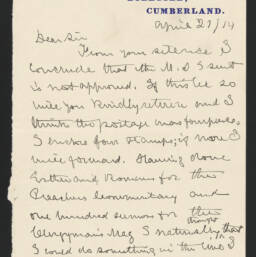 CUMBERLAND.
April 27/14
Dear Sir
From your silence I
conclude that the M.S.S sent
is not approved. If this be so
will you kindly return and I
think the postage was
I enclose four stamps; if more I
will forward. Having done
and for this
Preachers and
one hundred sermons for this
Clergyman's Mag I naturally thought
I could do something in this